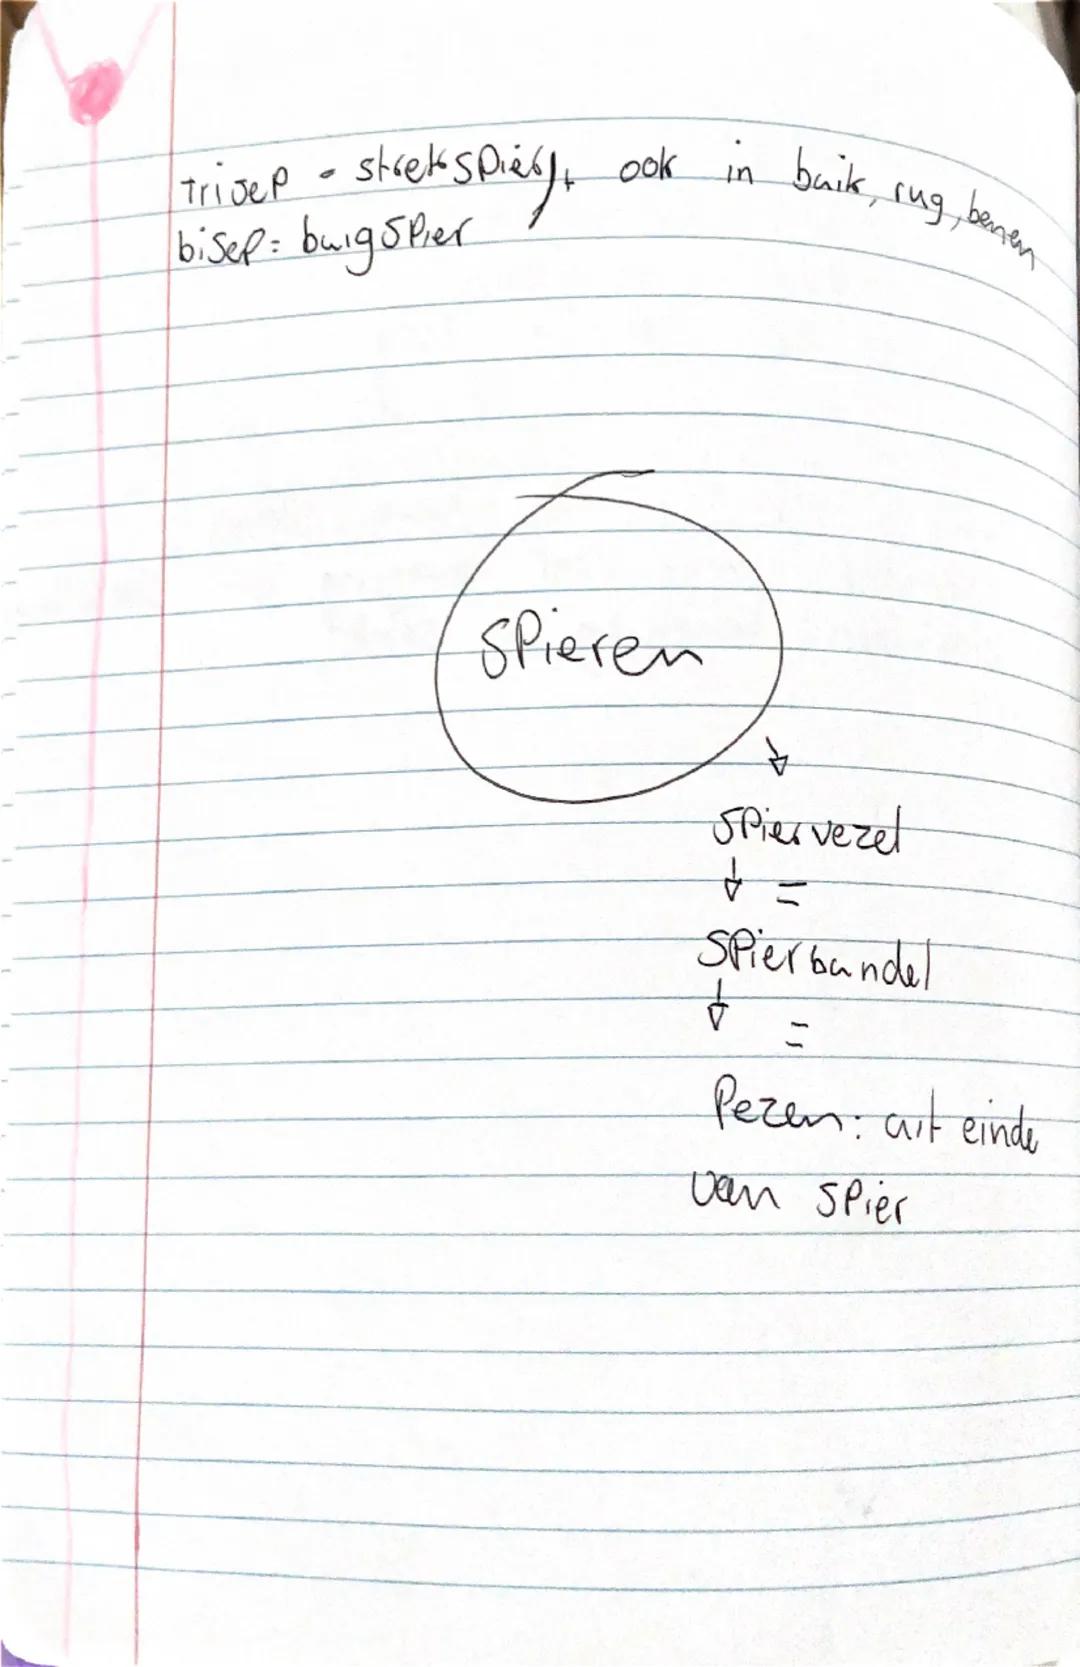 trisep = strekspier, ook in buik, rug, benen
bisep = buigspier
spieren
spiervezel
=
spierbundel
=
Pezen: uit einde
van spier